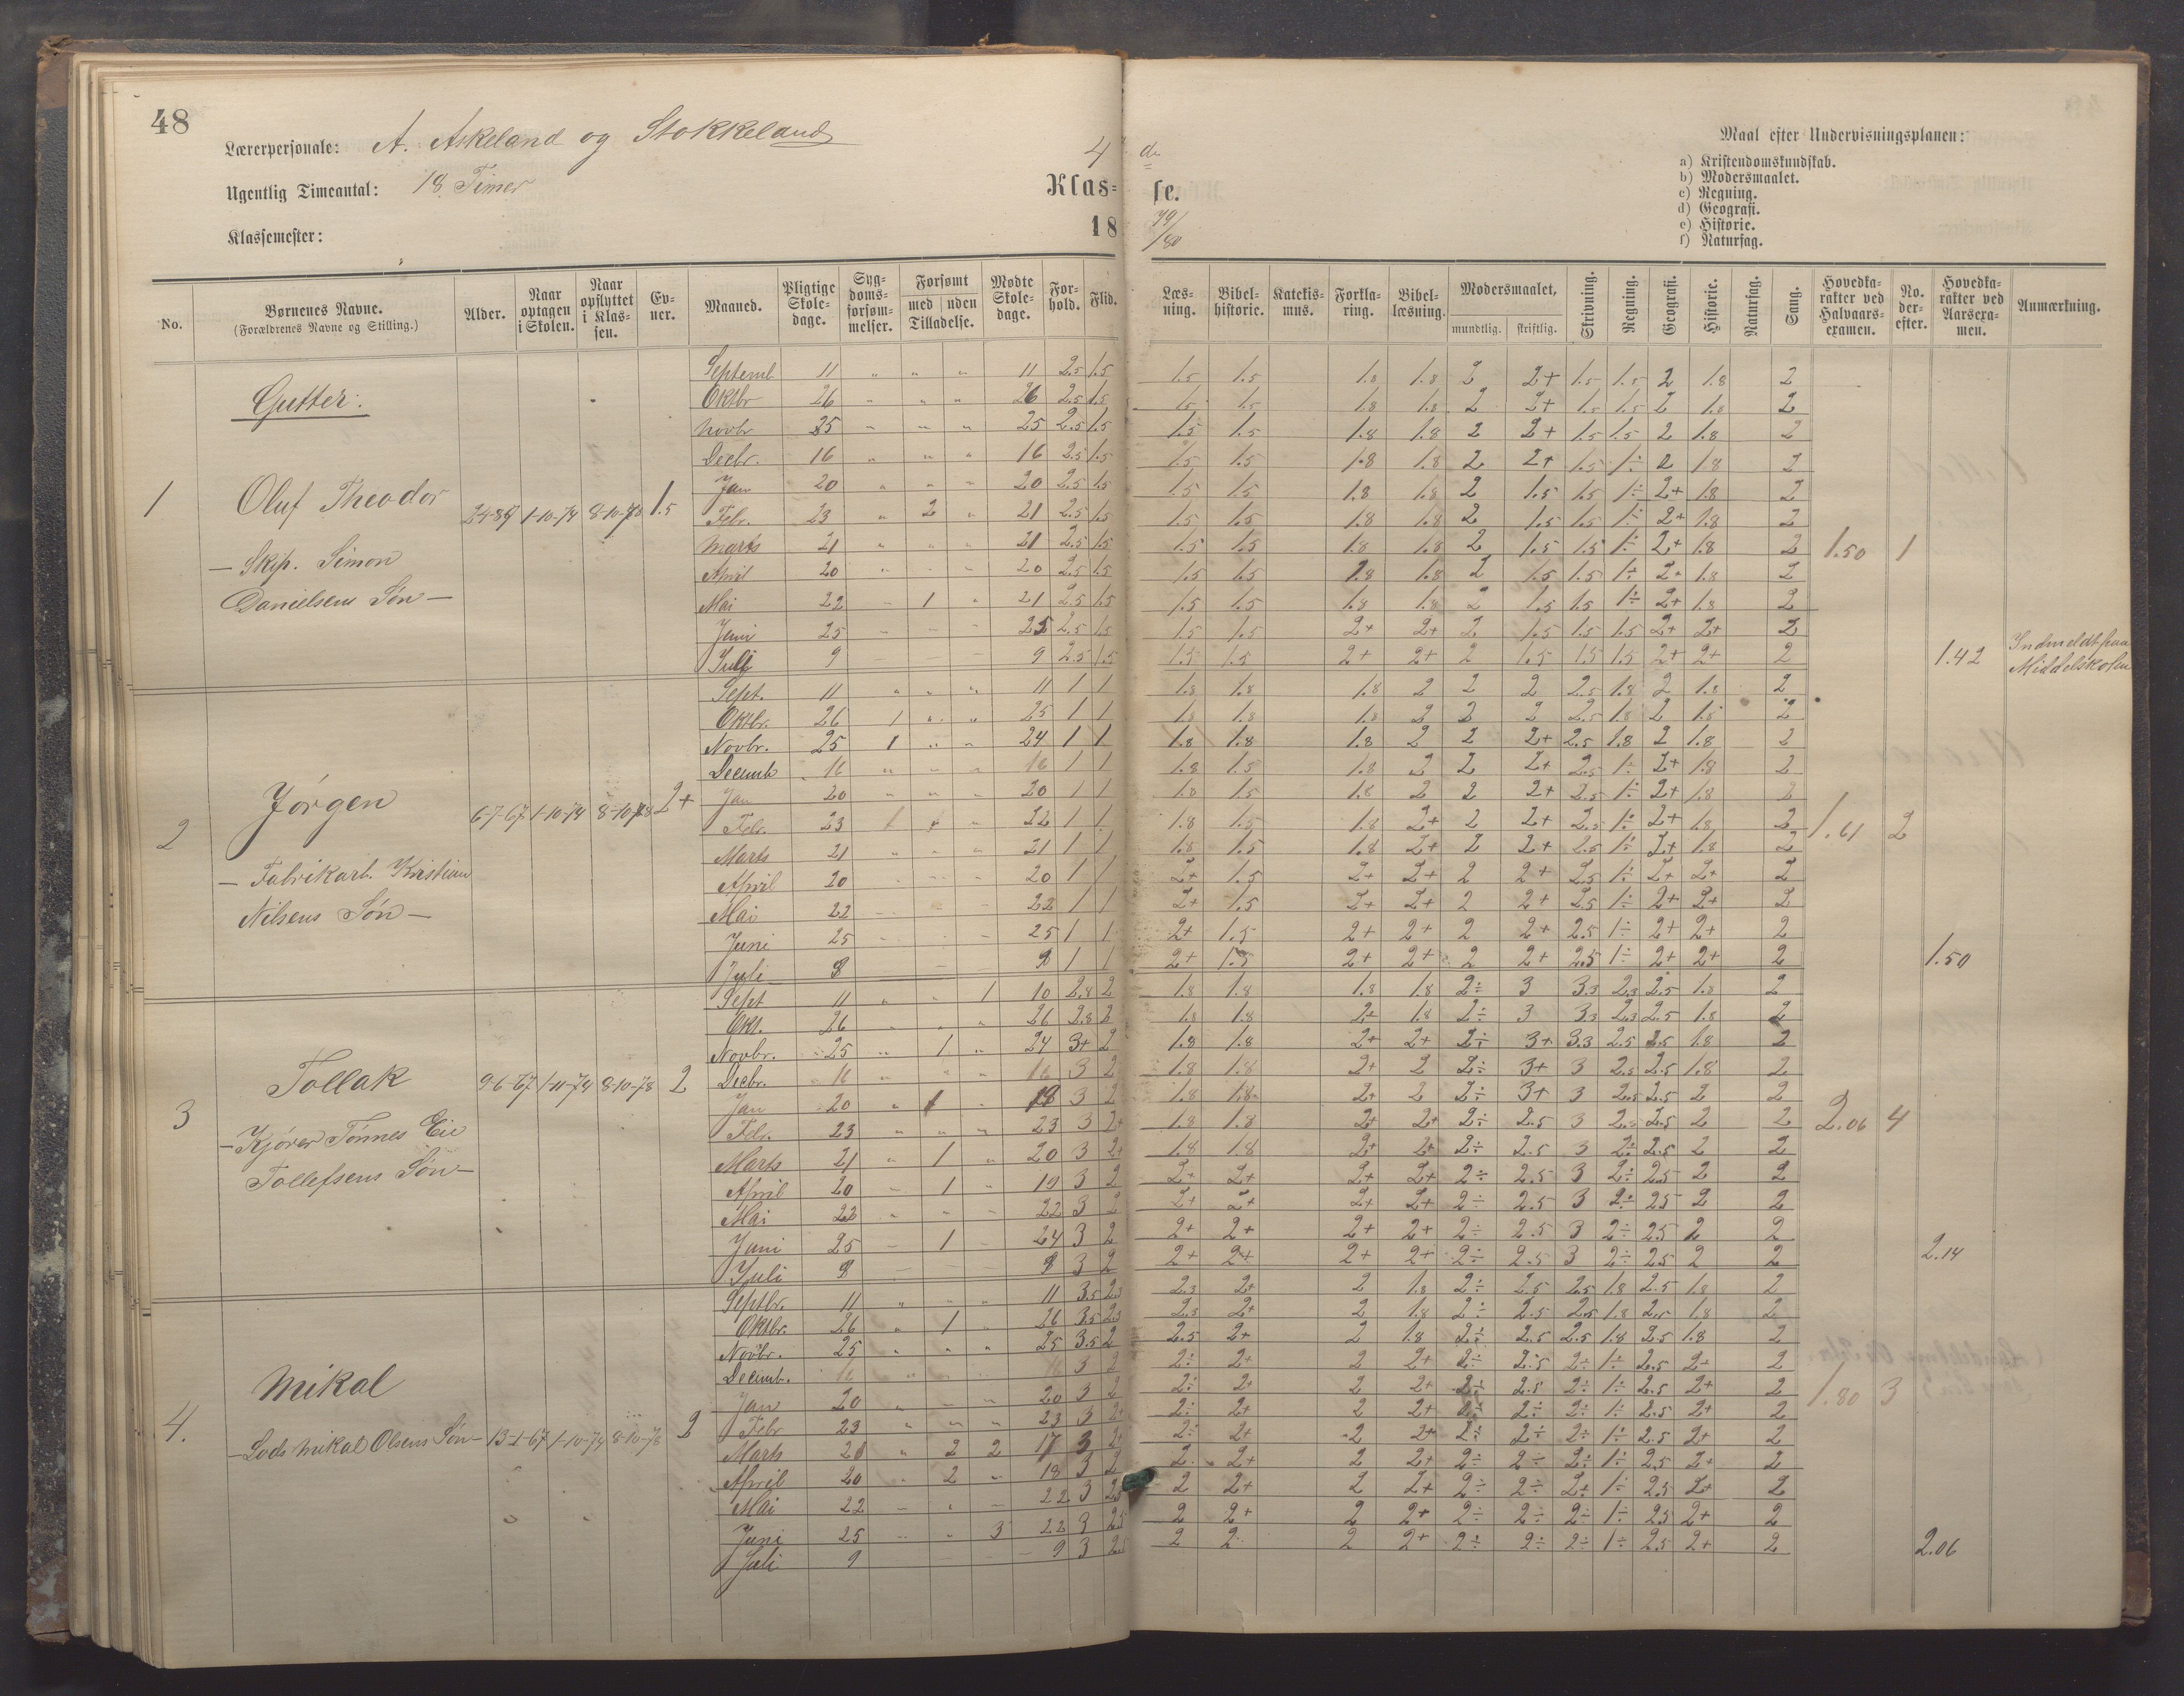 48
Lærerpersonale: A. Askeland og Stokkeland
Ugentlig Timeantal: 18 Timer
Klassemester:
4 de
Klasse.
18 79/80
Maal efter Undervisningsplanen:
a) Kristendomskundskab.
b) Modersmaalet.
c) Regning.
d) Geografi.
e) Historie.
f) Naturfag.
No.
Børnenes Navne.
(Forældrenes Navne og Stilling.)
Alder.
Naar optagen i Skolen.
Naar opflyttet i Klassen.
Evner.
Maaned.
Pligtige Skoledage.
Sygdomsforsømmelser.
Forsømt
med uden
Tilladelse.
Mødte Skoledage.
Forhold.
Flid.
Læsning.
Bibelhistorie.
Katekismus.
Forklaring.
Bibellæsning.
Modersmaalet,
mundtlig. skriftlig.
Skrivning.
Regning.
Geografi.
Historie.
Naturfag.
Sang.
Hovedkarakter ved Halvaarsexamen.
No. derefter.
Hovedkarakter ved Aarsexamen.
Anmærkning.
Gutter:
Septemb 11 " " " 11 2.5 1.5 1.5 1.5 1.8 1.8 2 2+ 1.5 1.5 2 1.8 2
Oktbr 26 " " " 26 2.5 1.5 1.5 1.5 1.8 1.8 2 2+ 1.5 1.5 2 1.8 2
Novbr 25 " " " 25 2.5 1.5 1.5 1.5 1.8 1.8 2 2+ 1.5 1.5 2 1.8 2
Decbr. 16 " " " 16 2.5 1.5 1.5 1.5 1.8 1.8 2 2+ 1.5 1÷ 2 1.8 2
Jan 20 " " " 20 2.5 1.5 1.5 1.5 1.8 1.8 2 1.5 1.5 1÷ 2+ 1.8 2
1 Oluf Theodor 1-10-74 8-10-78 1.5
Febr. 23 " 2 " 21 2.5 1.5 1.5 1.5 1.8 1.8 2 1.5 1.5 1÷ 2+ 1.8 2
Marts 21 " " " 21 2.5 1.5 1.5 1.5 1.8 1.8 2 1.5 1.5 1÷ 2+ 1.8 2 1.50 1
— Skip. Simon
April 20 " - " 20 2.5 1.5 1.5 1.5 1.8 1.8 2 1.5 1.5 1÷ 2+ 1.8 2
Danielsens Søn —
Mai 22 - 1 " 21 2.5 1.5 1.5 1.5 1.8 1.8 2 1.5 1.5 1÷ 2+ 1.8 2
Juni 25 - - - 25 2.5 1.5 1.5 1.5 2+ 2+ 2 1.5 1.5 1.5 2+ 2+ 2
Juli 9 - - - 9 2.5 1.5 1.5 1.5 2+ 2+ 2 1.5 1.5 1.5 2+ 2+ 2 1.42 Indmeldt paa Middelskolen
Sept. 11 " " " 11 1 1 1.8 1.8 1.8 2 2 2 2.5 1.8 2 1.8 2
Oktbr. 26 1 " " 25 1 1 1.8 1.8 1.8 2 2 2 2.5 1.8 2 1.8 2
Novbr. 25 1 " " 24 1 1 1.8 1.8 1.8 2 2 2+ 2.5 1.8 2 1.8 2
Decemb 16 " - " 16 1 1 1.8 1.5 1.8 2 2 2+ 2.5 1÷ 2+ 1.8 2
Jan 20 " " " 20 1 1 1.8 1.5 1.8 2 2 2+ 2.5 1÷ 2+ 1.8 2
2 Jørgen 6-7-67 1-10-74 8-10-78 2+
Febr. 23 1 " 22 1 1 1.8 1.5 1.8 2+ 2 2+ 2.5 1÷ 2+ 1.8 2 1.61 2
Marts 21 " " " 21 1 1 1.8 1.5 1.8 2+ 2 2+ 2.5 1÷ 2+ 1.8 2
— Fabrikarb. Kristian
April 20 - - - 20 1 1 2+ 1.5 2+ 2+ 2 2+ 2.5 1÷ 2+ 2+ 2
Nilsens Søn —
Mai 22 - - - 22 1 1 2+ 1.5 2+ 2+ 2 2+ 2.5 1÷ 2+ 2+ 2
Juni 25 - - - 25 1 1 2+ 1.5 2+ 2+ 2 2+ 2.5 1÷ 2+ 2+ 2
Juli 9 1 1 2+ 1.5 2+ 2+ 2 2+ 2.5 1÷ 2+ 2+ 2 1.50
Sept 11 " " 1 10 2.8 2 1.8 1.8 1.8 1.8 2÷ 3 3.3 2.3 2.5 1.8 2
Okt. 26 " " " 26 2.8 2 1.8 1.8 2+ 1.8 2÷ 3 3.3 2.3 2.5 1.8 2
Novbr. 25 " 1 " 24 3+ 2 1.8 1.8 2+ 2+ 2÷ 3+ 3.3 2.5 2.5 1.8 2
Decbr. 16 " " " 16 3 2 1.8 1.8 2+ 2 2÷ 3+ 3 2.5 2.5 1.8 2
3 Tollak 9-6-67 1-11-74 8-10-78 2
Jan 20 " 1 - 19 3 2 1.8 1.8 2+ 2 2÷ 3+ 3 2.5 2.5 2 2
Febr. 23 " " " 23 3 2+ 1.8 1.8 2+ 2+ 2÷ 2.5 3 2.5 2.5 2 2 2.06 4
— Kjører Tønnes Eie
Marts 21 " 1 " 20 3 2+ 1.8 1.8 2+ 2+ 2÷ 2.5 3 2÷ 2.5 2 2
Tollefsens Søn —
April 20 - 1 " 19 3 2 2+ 2+ 2+ 2+ 2÷ 2.5 3 2÷ 2.5 2 2
Mai 22 " " " 22 3 2 2+ 2+ 2+ 2+ 2÷ 2.5 3 2÷ 2.5 2 2
Juni 25 - 1 - 24 3 2 2+ 2+ 2+ 2+ 2÷ 2.5 3 2÷ 2.5 2 2
Juli 9 3 2 2+ 2+ 2+ 2+ 2÷ 2.5 3 2÷ 2.5 2 2 2.14
Septbr. 11 " - " 11 3.5 2.3 2.3 2+ 2 1.8 2÷ 2.5 2.5 1.8 2.5 1.8 2
Oktbr. 26 " 1 " 26 3.5 2.3 2.3 2+ 2 1.8 2÷ 2.5 2.5 1.8 2.5 1.8 2
Novbr. 25 " " " 25 3.5 2 2.5 2+ 2 1.8 2÷ 2.5 2.5 1.8 2.5 1.8 2
Decemb. 16 " 16 3 2 2÷ 2+ 2 2+ 2÷ 2.5 2÷ 1÷ 2.5 2+ 2
Mikal
Jan 20 " " " 20 3 2 2÷ 2+ 2 2+ 2÷ 2.5 2÷ 1÷ 2.5 2+ 2 1.80 3
4. — Lods Mikal Olsens Søn — 13-1-67 1-10-74 8-10-78 2
Febr 23 " " " 23 3 2+ 2÷ 2+ 2 2+ 2÷ 2÷ 2÷ 1÷ 2.5 2+ 2
Marts 21 " 2 2 17 3 2+ 2÷ 2+ 2 2+ 2÷ 2÷ 2÷ 1÷ 2.5 2+ 2
April 20 " 2 " 18 3 2 2 2+ 2 2+ 2÷ 2÷ 2÷ 1÷ 2.5 2+ 2
Mai 22 - " - 22 3 2.5 2 2+ 2 2+ 2÷ 2÷ 2÷ 1÷ 2.5 2+ 2
Juni 25 - " 3 22 3 2.5 2 2+ 2 2+ 2÷ 2÷ 2÷ 1÷ 2.5 2+ 2
Juli 9 - - - 9 3 2.5 2 2 2 2+ 2÷ 2÷ 2÷ 1÷ 2.5 2+ 2 2.06